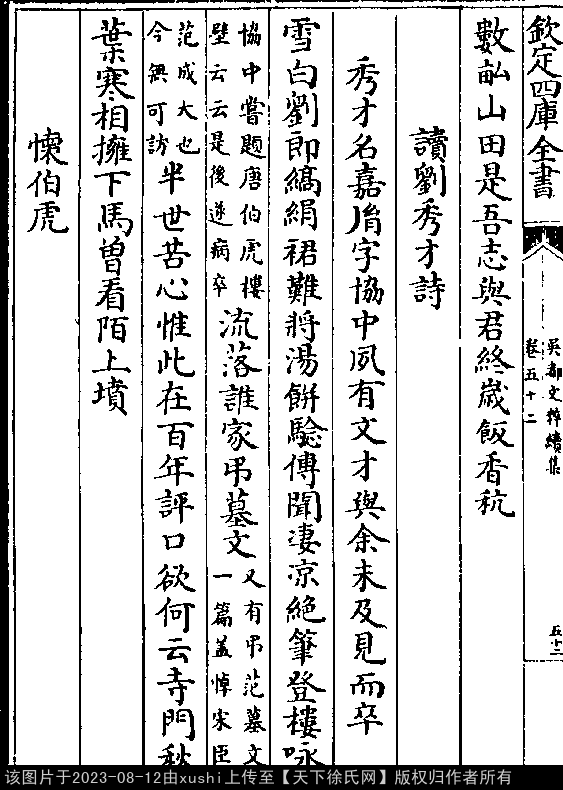 欽定四庫全書
吳都文粹續集
卷五十二
五十二
數畝山田是吾志與君終歲飯香秔
讀劉秀才詩
秀才名嘉胤字協中夙有文才與余未及見而卒
雪白劉郎縞絹裙難將湯餅驗傳聞淒凉絶筆登樓咏
協中嘗題唐伯虎樓
壁云云是後遂病卒
流落誰家弔墓文
又有弔范墓文
一篇蓋悼宋臣
范成大也
今無可訪
半世苦心惟此在百年評口欲何云寺門秋
葉寒相擁下馬曾看陌上墳
懷伯虎
该图片于2023-08-12由xushi上传至【天下徐氏网】版权归作者所有